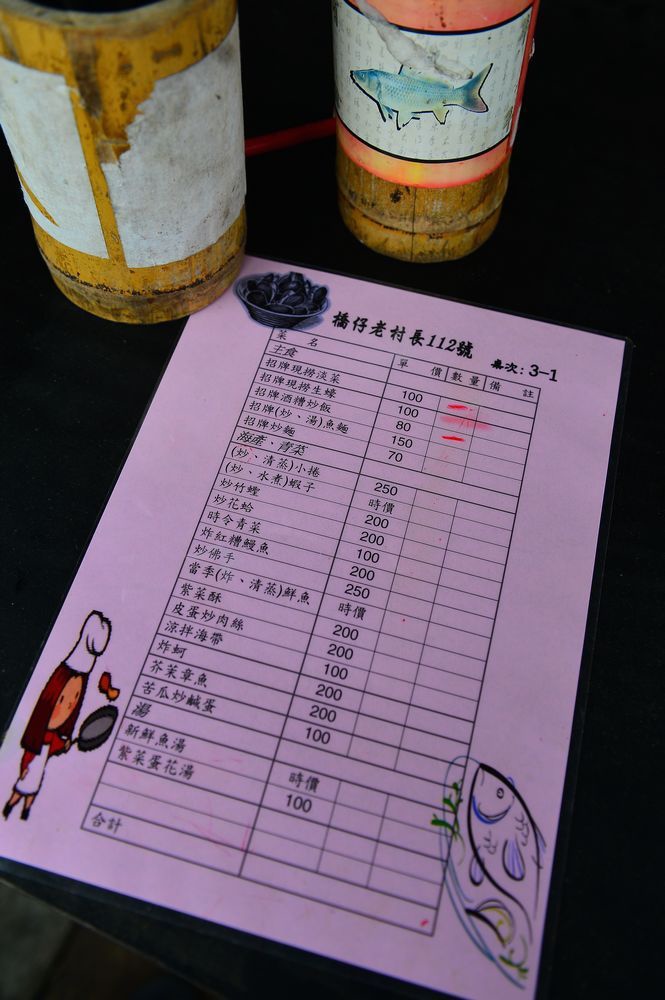 橋仔老村長112號 桌次:3-1
菜名 單價 數量 備註
主食
招牌現撈淡菜 100
招牌現撈生蠔 100
招牌酒糟炒飯 80
招牌(炒、湯)魚麵 150
招牌炒麵 70
海產、青菜
(炒、清蒸)小捲 250
(炒、水煮)蝦子 時價
炒竹蟶 200
炒花蛤 200
時令青菜 100
炸紅糟鰻魚 200
炒佛手 250
當季(炸、清蒸)鮮魚 時價
紫菜酥 200
皮蛋炒肉絲 200
涼拌海帶 100
炸蚵 200
芥茉章魚 200
苦瓜炒鹹蛋 100
湯
新鮮魚湯 時價
紫菜蛋花湯 100
合計